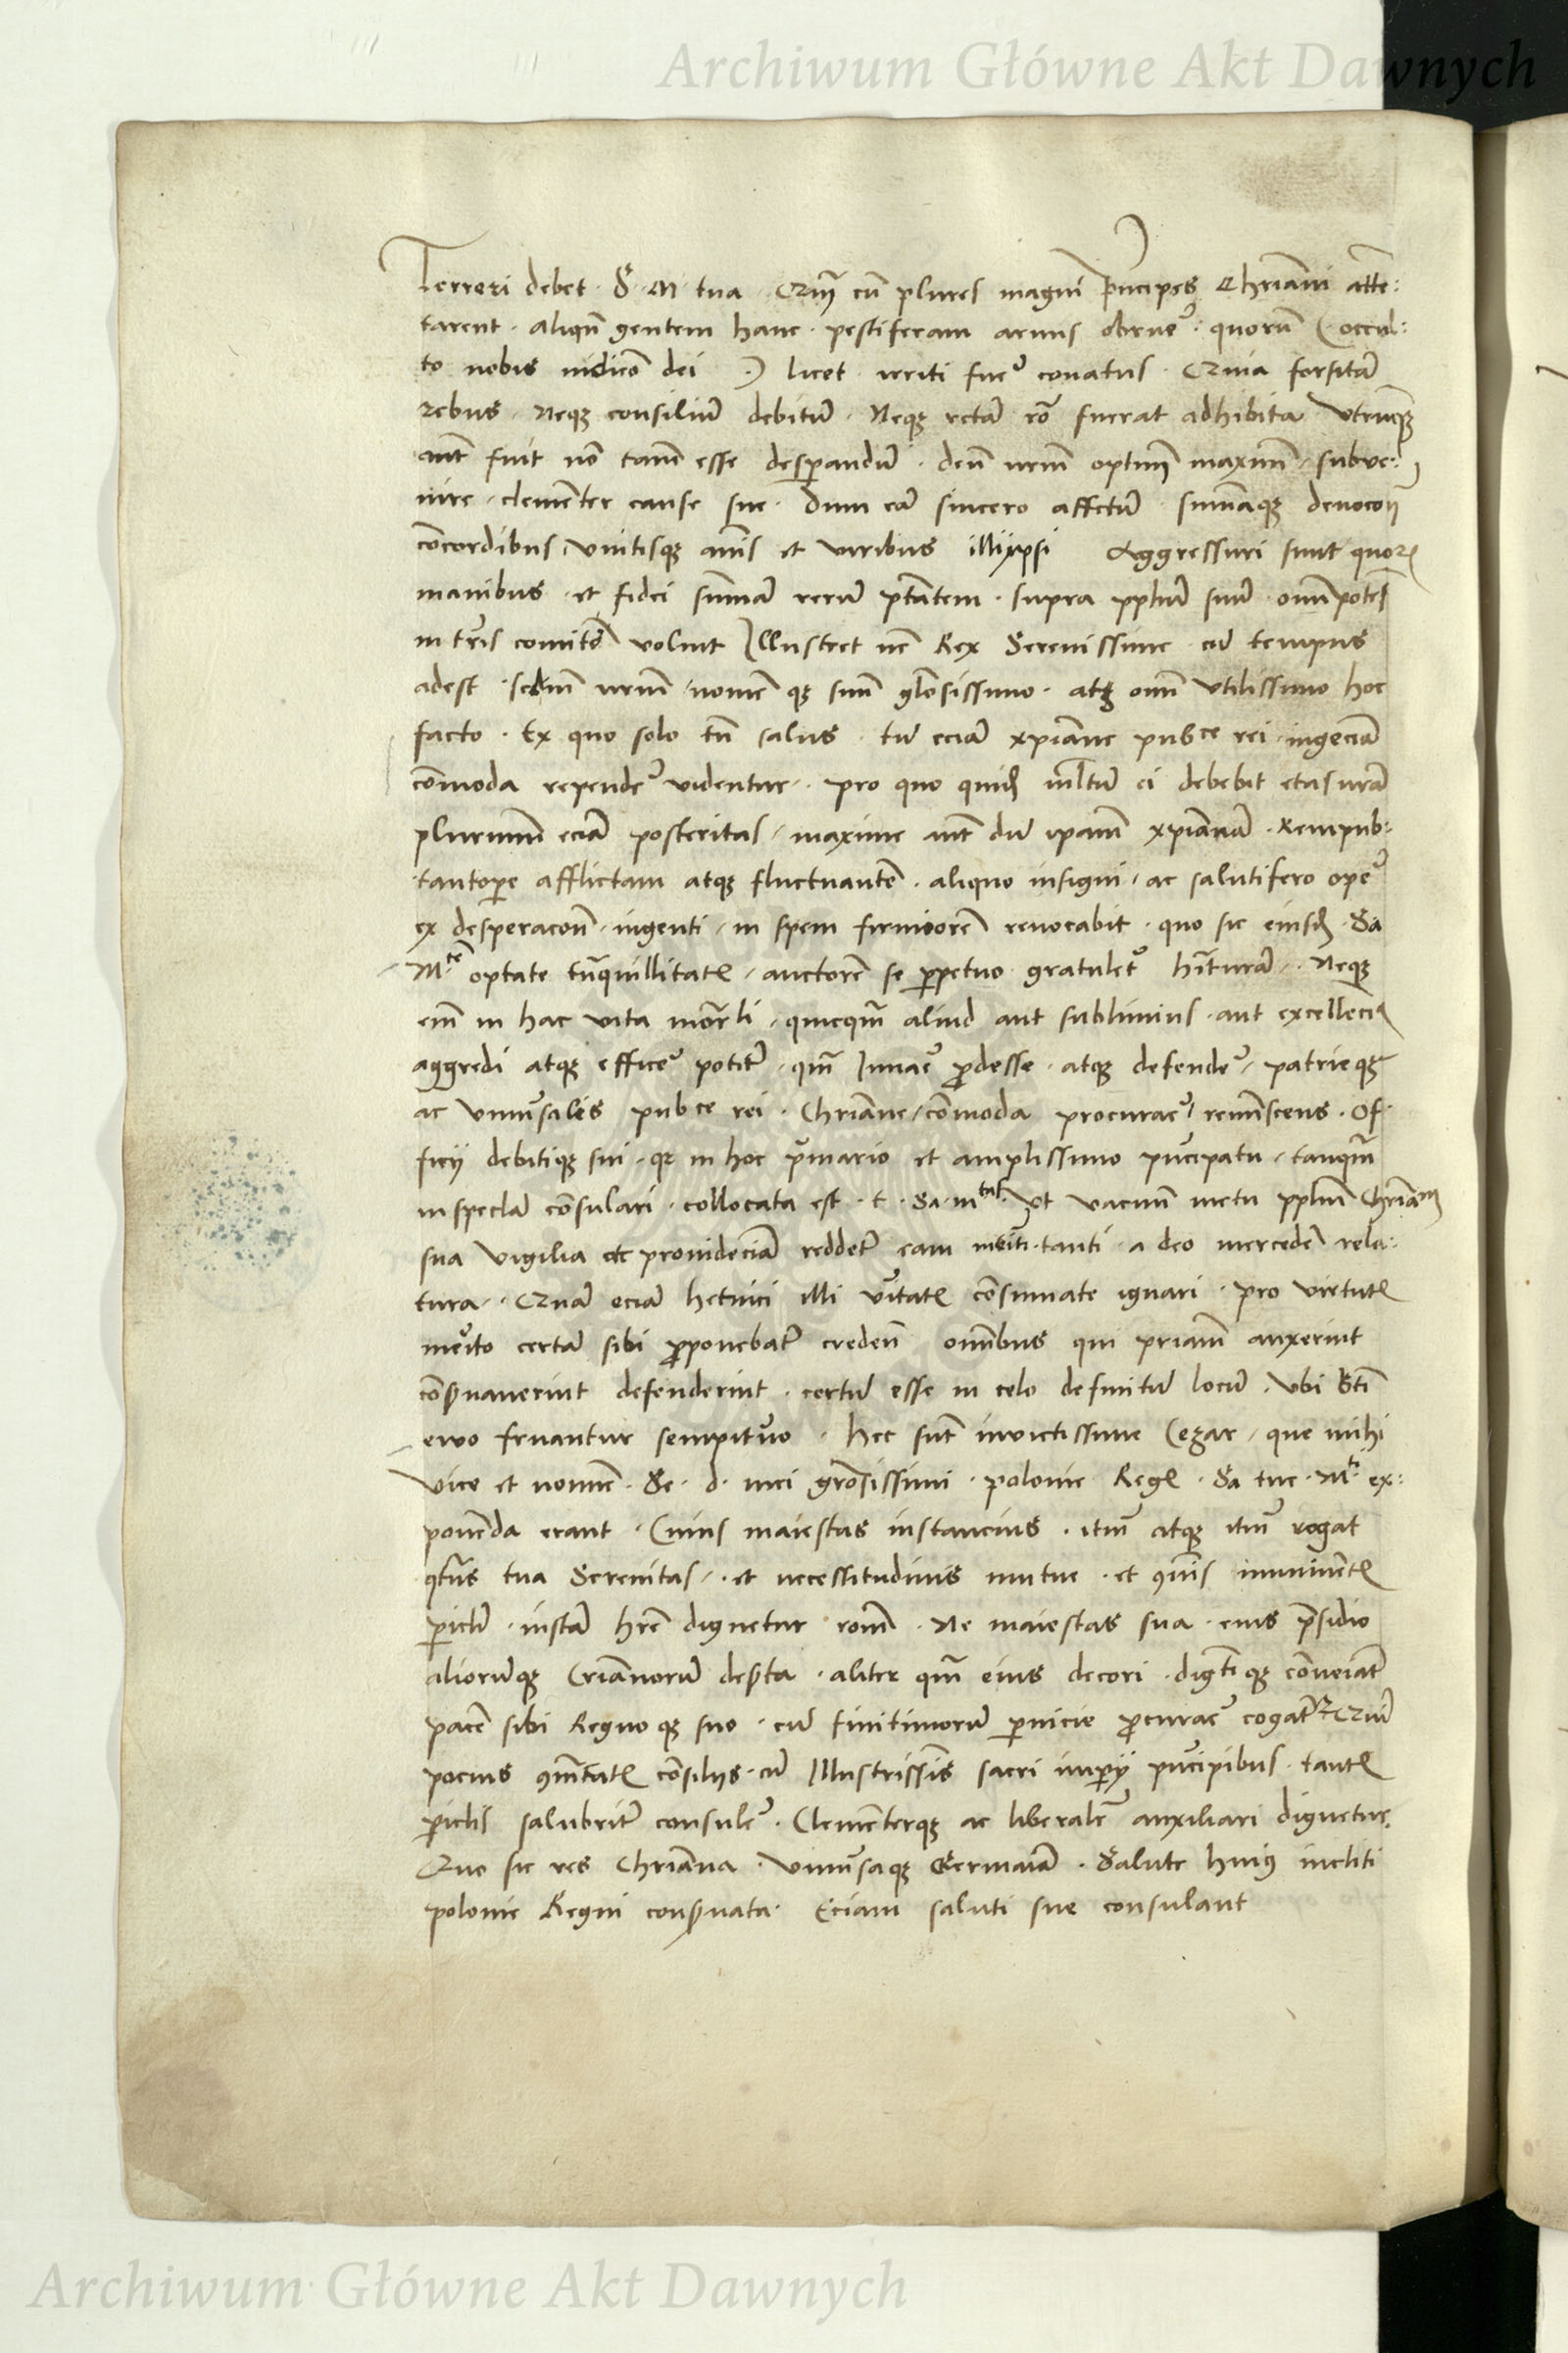 Archiwum Główne Akt Dawnych
Terreri debet · S · M · tua · Cum cu plures magni principes Chriani atte:
tarent · aliqn gentem hanc · pestiferam armis obrue · quoru (occul:
to nobis iudico dei ·) licet irriti fue conatus · Quia forsita
rebus · Neq consiliu debitu · Neq recta ro fuerat adhibita Vtrumq
aut fuit no tame esse desperandu · deu nrm optim maximu · subve:
nire · clementer cause sue · dum ea sincero affectu summaq devocon
concordibus vnitisq anis et viribus illi ipsi Aggressuri sunt quor
manibus · et fidei summa reru ptatem · supra pplum suu · omnipotes
in tris comitte voluit Illustret ne Rex Serenissime cu tempus
adest · sedm nrm nomen q suu glosissimo · atq omi vtilissimo hoc
facto · Ex quo solo tu salus · tu ecia xpiane pubce rei ingecia
comoda repende videntur · pro quo quid multu ei debebit etas nra
plurimu ecia posteritas · maxime aut du ipam xpiana Rempub:
tantope afflictam atq fluctuante · aliquo insigni · ac salutifero ope
ex desperacon · ingenti · in spem firmiore revocabit · quo sic eiusd Sa
Mte optate tnquillitate · auctore se perpetuo gratulet hitura · Neq
em in hac vita morli · quicqm aliud aut sublimius · aut excellecius
aggredi atq effice potit · qm Iuvae prodesse · atq defende · patrieq
ac vniusales pubce rei · Chriane comoda procurae reminscens · Of
ficij debitiq sui · q in hoc pmario et amplissimo pncipatu · tanqm
in specla consulari · collocata est · t · Sa · mtas · Vt vacuum metu pplum Chrianu
sua vigilia et providecia reddet eam meiti tanti · a deo mercede rela:
tura · Qua ecia hetnici illi vitate consumate ignari · pro virtute
meito certa sibi proponebat creden omibus qui priam auxerint
conservaverint defenderint · certu esse in celo definitu locu · vbi bti
evo fruantur sempituo · hec sut invictissime Cezar · que mihi
vice et nomine · Se · d · mei grosissimi · polonie Regis · Sa tue · Mti ex:
ponenda erant · Cuius maiestas instancius · itm atq itm rogat
qtus tua Serenitas · et necessitudinis mutue · et comis imminentis
pericli · iusta hre dignetur rom · Ne maiestas sua · eius presidio
alioruq Crianoru desta · aliter qm eius decori · digtiq conveiat
pace sibi Regno q suo · cu finitimoru pernicie procurae cogat Quu
pocius comtatis consiliis · cu Illustrissis sacri imperij pncipibus tantis
periclis salubrit consule · Clementerq ac liberale auxiliari dignetur
Quo sic res Chriana · vniusaq Germaia · Salute huius incliti
polonie Regni conservata · Eciam saluti sue consulant
Archiwum Główne Akt Dawnych